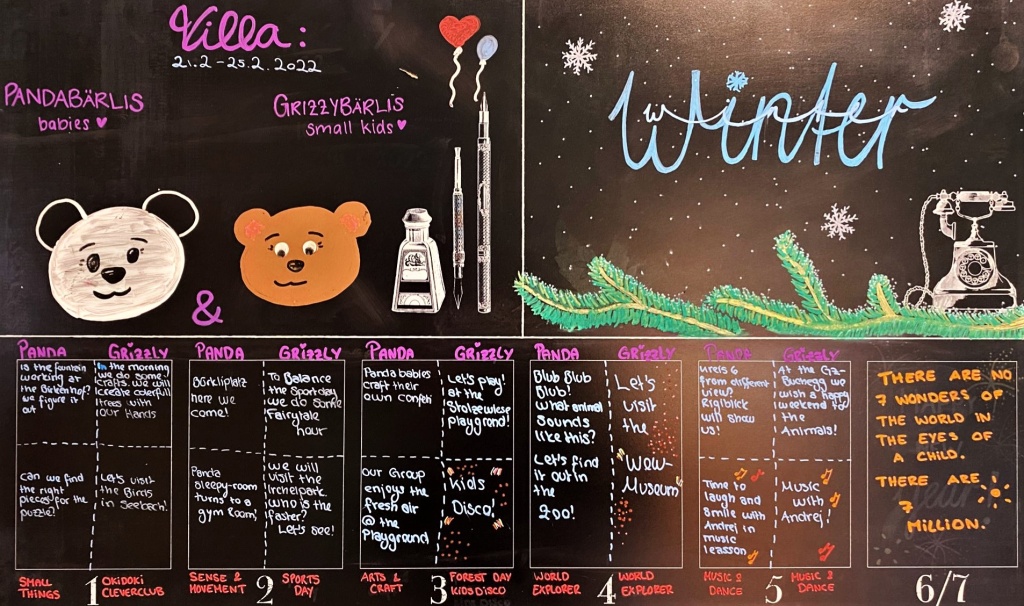 Villa:
21.2 - 25.2. 2022
PANDABÄRLIS
babies
GRIZZYBÄRLIS
small kids
&
Winter
PANDA
Is the fountain
working at
the
we figure it
out
can we find
the right
pieces for the
puzzle?
SMALL
THINGS
1
GRIZZLY
In the morning
we do some
crafts. we will
create colerfull
trees with
our Hands
Let's visit
the Birds
in Seebach!
OKIDOKI
CLEVERCLUB
PANDA
Bürkliplatz
here we
come!
Panda
sleepy-room
turns to a
gym Room!
SENSE &
MOVEMENT
2
GRIZZLY
To Balance
the Sportsday
we do some
Fairytale
hour
we will
visit the
Irchelpark.
who is the
faster?
Let's see!
SPORTS
DAY
PANDA
Panda babies
craft their
own confeti
our Group
enjoys the
fresh air
@ the
Playground
ARTS &
CRAFT
3
GRIZZLY
Let's play!
at the
Stolzewiese
playgrond!
kids
Disco!
FOREST DAY
KIDS DISCO
PANDA
Blub Blub
Blub!
what animal
sounds
like this?
Let's find
it out in
the
zoo!
WORLD
EXPLORER
4
GRIZZLY
Let's
visit
the
Wow-
Museum
WORLD
EXPLORER
PANDA
from different
view?
Rigiblick
will show
us!
Time to
laugh and
smile with
Andrej in
music
leasson
MUSIC &
DANCE
5
GRIZZLY
At the
we
wish a happy
weekend to
the
Animals!
Music
with
Andrej!
MUSIC &
DANCE
THERE ARE NO
7 WONDERS OF
THE WORLD IN
THE EYES OF
A CHILD.
THERE ARE
7
MILLION.
6/7